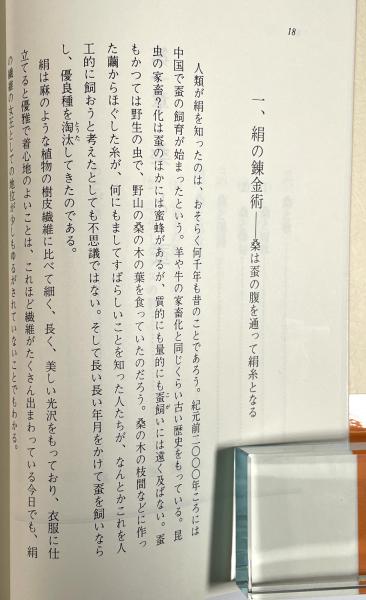 18
一、絹の錬金術――桑は蚕の腹を通って絹糸となる
人類が絹を知ったのは、おそらく何千年も昔のことであろう。紀元前二〇〇〇年ころには
中国で蚕の飼育が始まったという。羊や牛の家畜化と同じくらい古い歴史をもっている。昆
虫の家畜?化は蚕のほかには蜜蜂があるが、質的にも量的にも蚕飼いには遠く及ばない。蚕
もかつては野生の虫で、野山の桑の木の葉を食っていたのだろう。桑の木の枝間などに作っ
た繭からほぐした糸が、何にもましてすばらしいことを知った人たちが、なんとかこれを人
工的に飼おうと考えたとしても不思議ではない。そして長い長い年月をかけて蚕を飼いなら
し、優良種を淘汰してきたのである。
絹は麻のような植物の樹皮繊維に比べて細く、長く、美しい光沢をもっており、衣服に仕
立てると優雅で着心地のよいことは、これほど繊維がたくさん出まわっている今日でも、絹
の繊維の女王としての地位が少しもゆるがされていないことでもわかる。